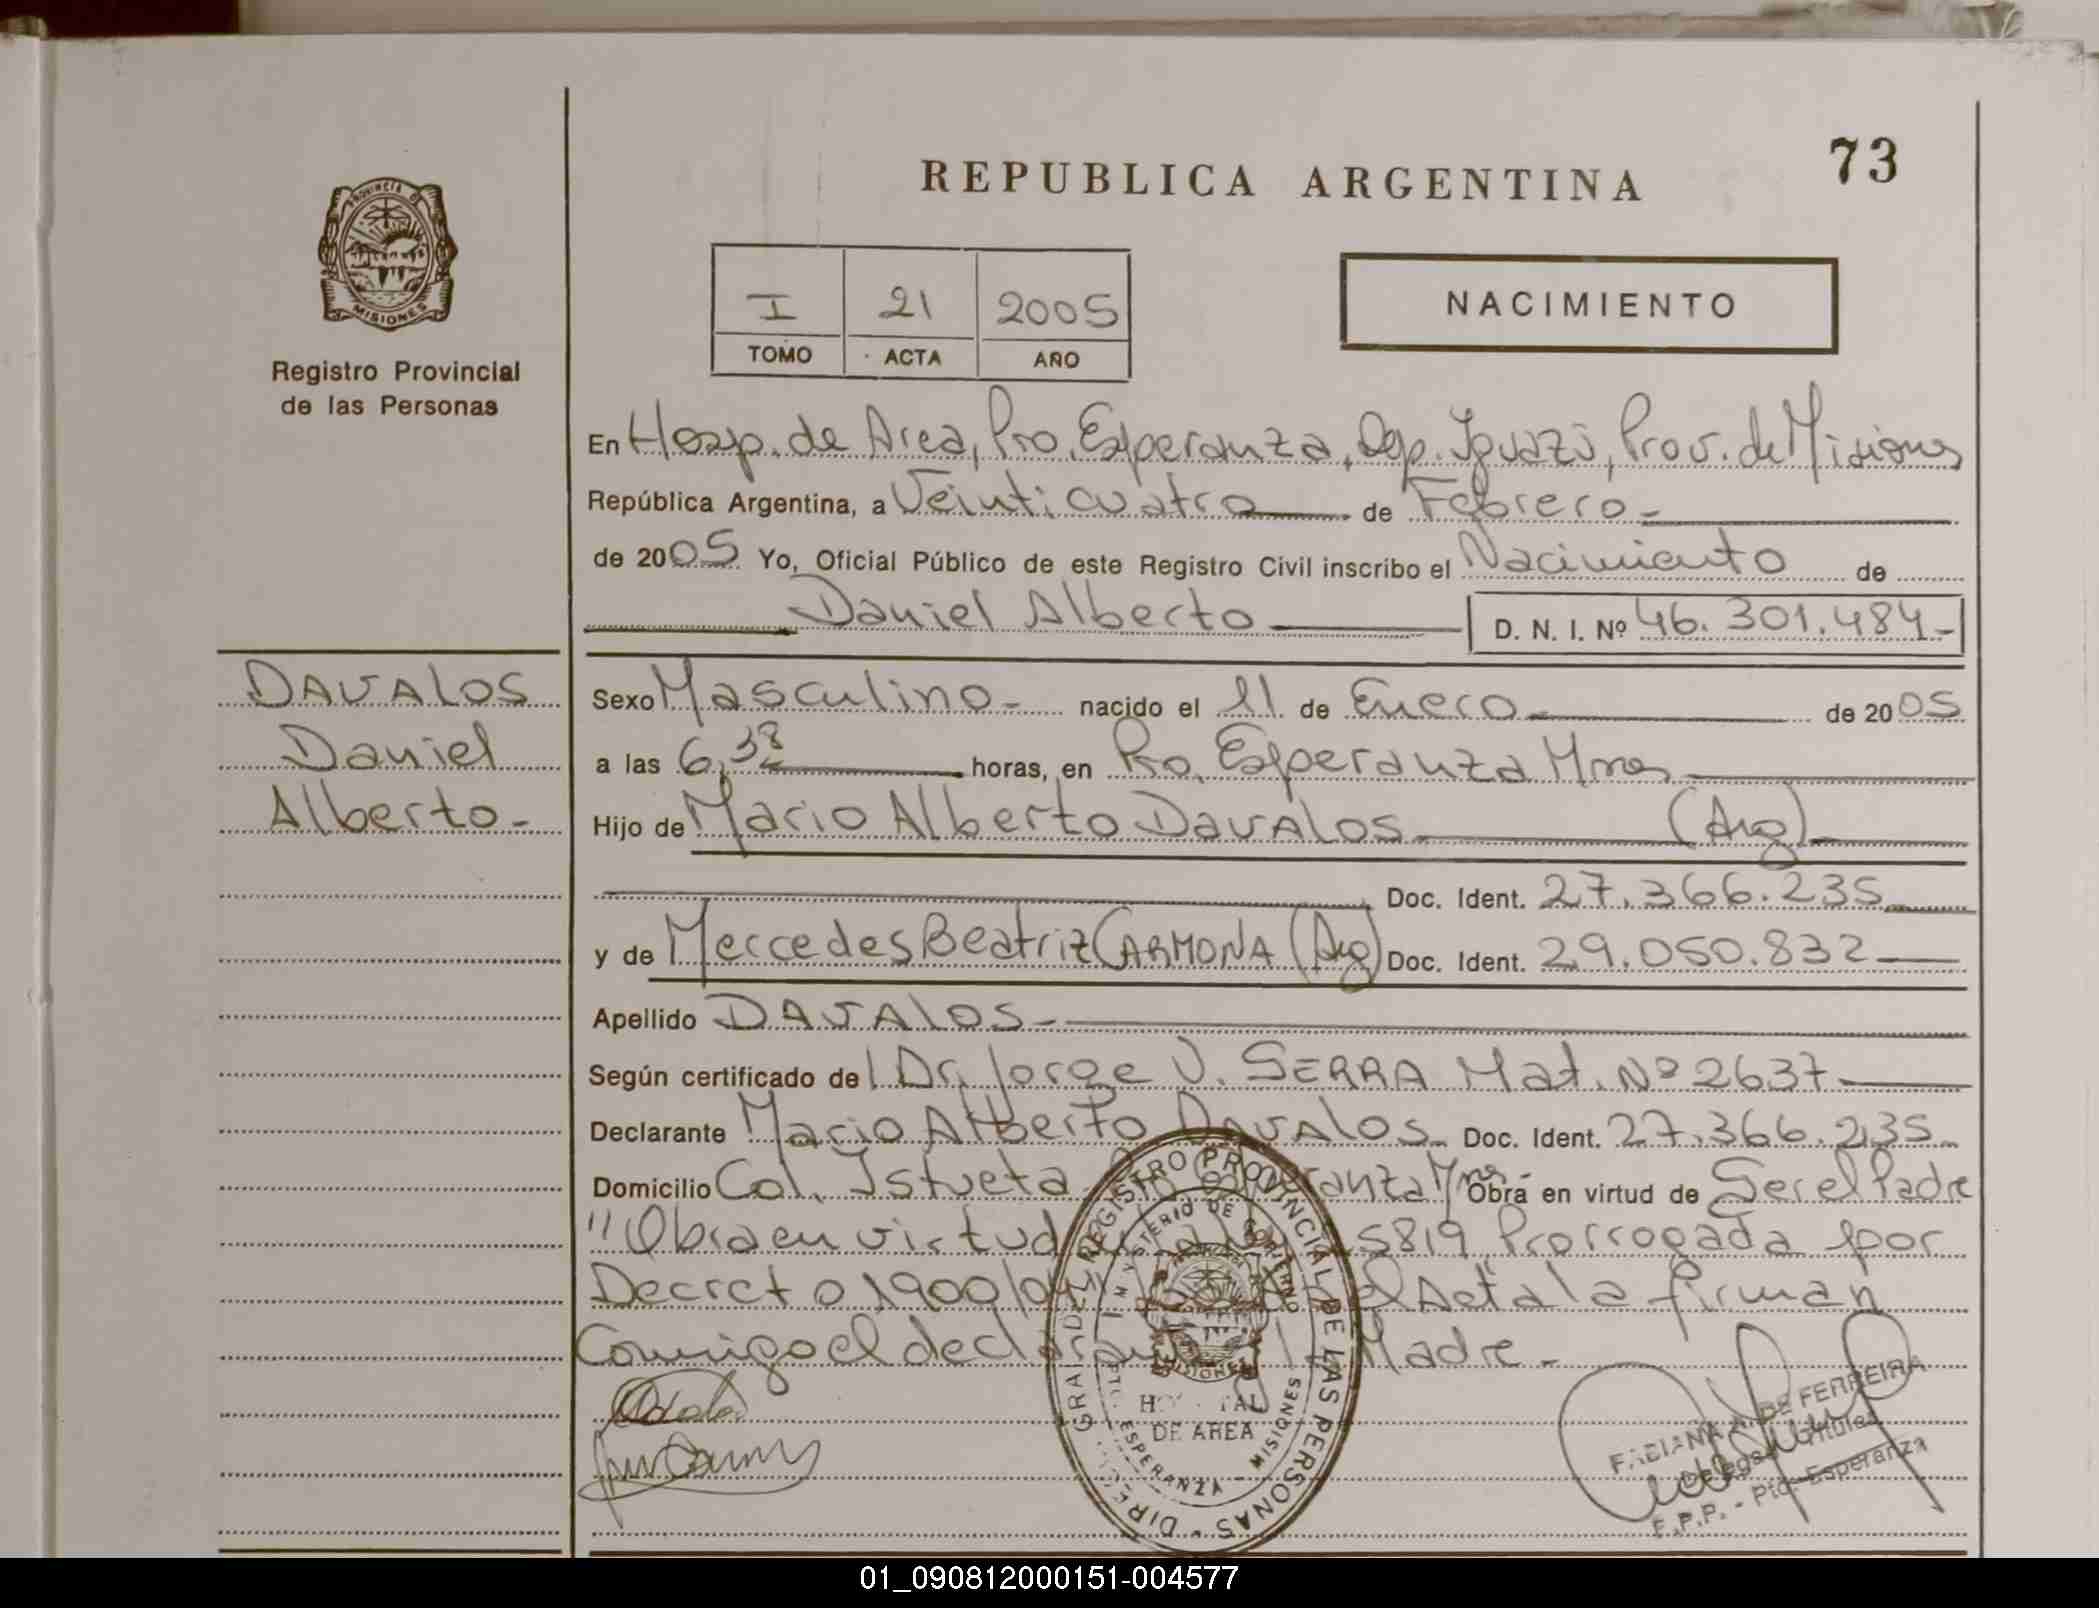 73
REPUBLICA ARGENTINA
PROVINCIA DE
MISIONES
Registro Provincial
de las Personas
I 21 2005
TOMO ACTA AÑO
NACIMIENTO
En Hosp. de Area, Pto. Esperanza, Dep. Iguazú, Prov. de Misiones
República Argentina, a Veinticuatro de Febrero
de 2005 Yo, Oficial Público de este Registro Civil inscribo el Nacimiento de
Daniel Alberto D. N. I. Nº 46.301.484
DAVALOS
Daniel
Alberto
Sexo Masculino nacido el 11 de Enero de 2005
a las 6,38 horas, en Pto. Esperanza Mnes
Hijo de Mario Alberto DAVALOS (Arg)
Doc. Ident. 27.366.235
y de Mercedes Beatriz CARMONA (Arg) Doc. Ident. 29.050.832
Apellido DAVALOS
Según certificado del Dr. Jorge V. SERRA Mat. Nº 2637
Declarante Mario Alberto DAVALOS Doc. Ident. 27.366.235
Domicilio Col. Istueta Esperanza Mnes Obra en virtud de Ser el Padre
"Obra en virtud 25819 Prorrogada por
Decreto 1900/04 el Acta la firman
Conmigo el declarante Madre.
DIRECCION GRAL DEL REGISTRO PROVINCIAL DE LAS PERSONAS
MINISTERIO DE GOBIERNO
MISIONES
HOSPITAL
DE AREA
ESPERANZA - MISIONES
FABIANA A. DE FERREIRA
Delegada Titular
R.P.P. - Pto. Esperanza
01_090812000151-004577